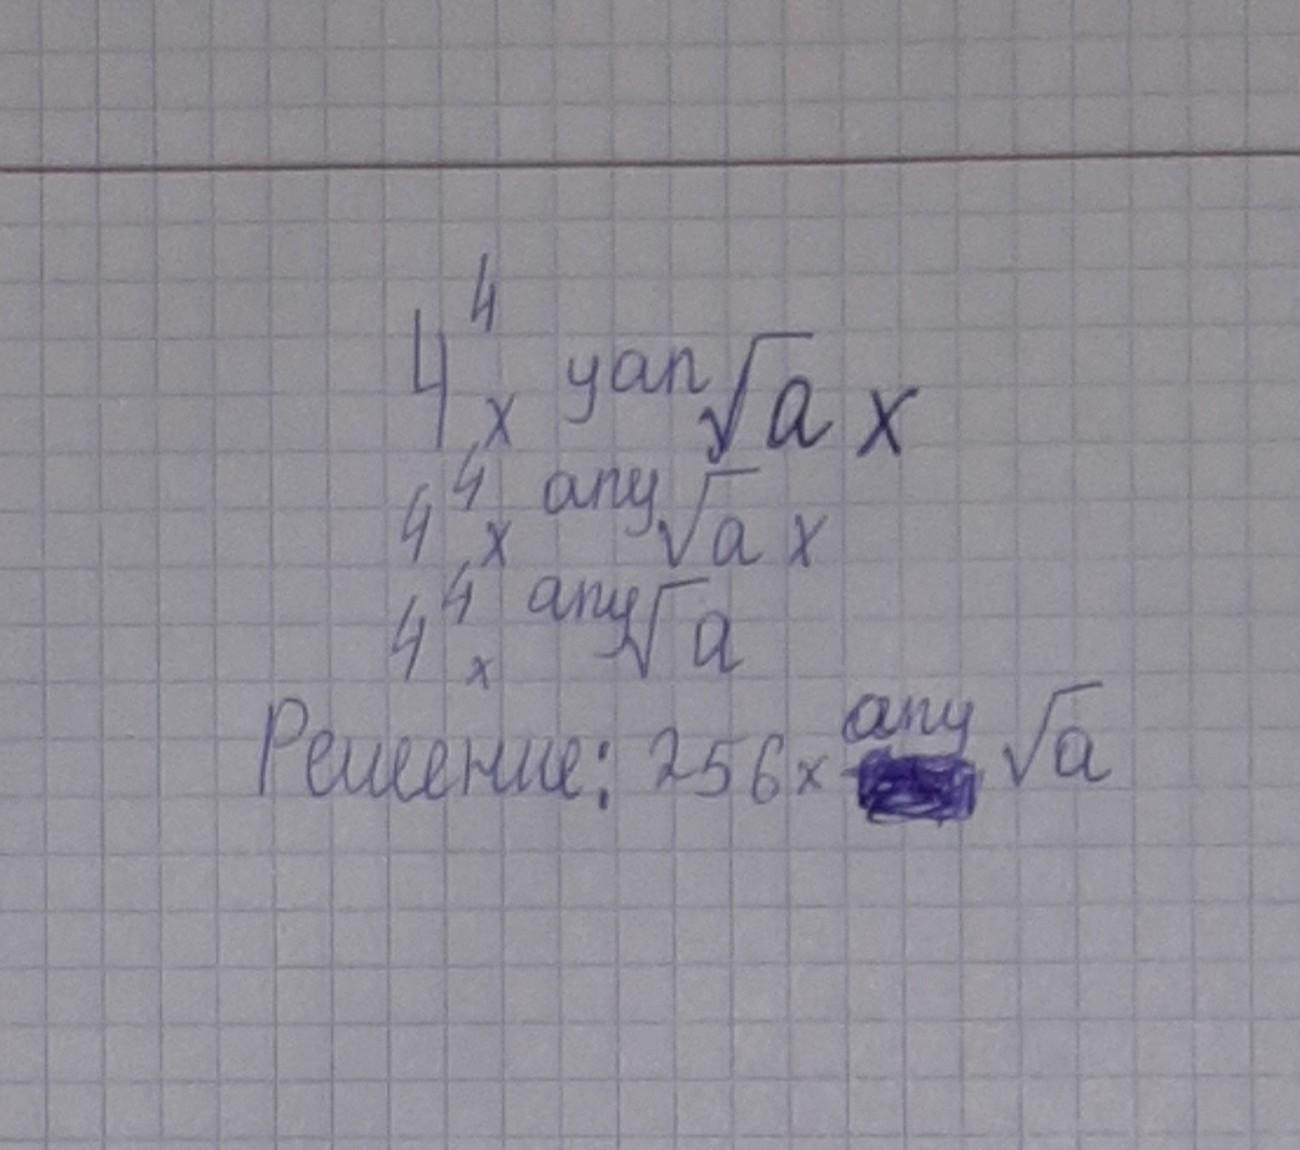 4⁴x ʸᵃⁿ√a x
4⁴x ᵃⁿʸ√a x
4⁴x ᵃⁿʸ√a
Решение: 256x ᵃⁿʸ√a